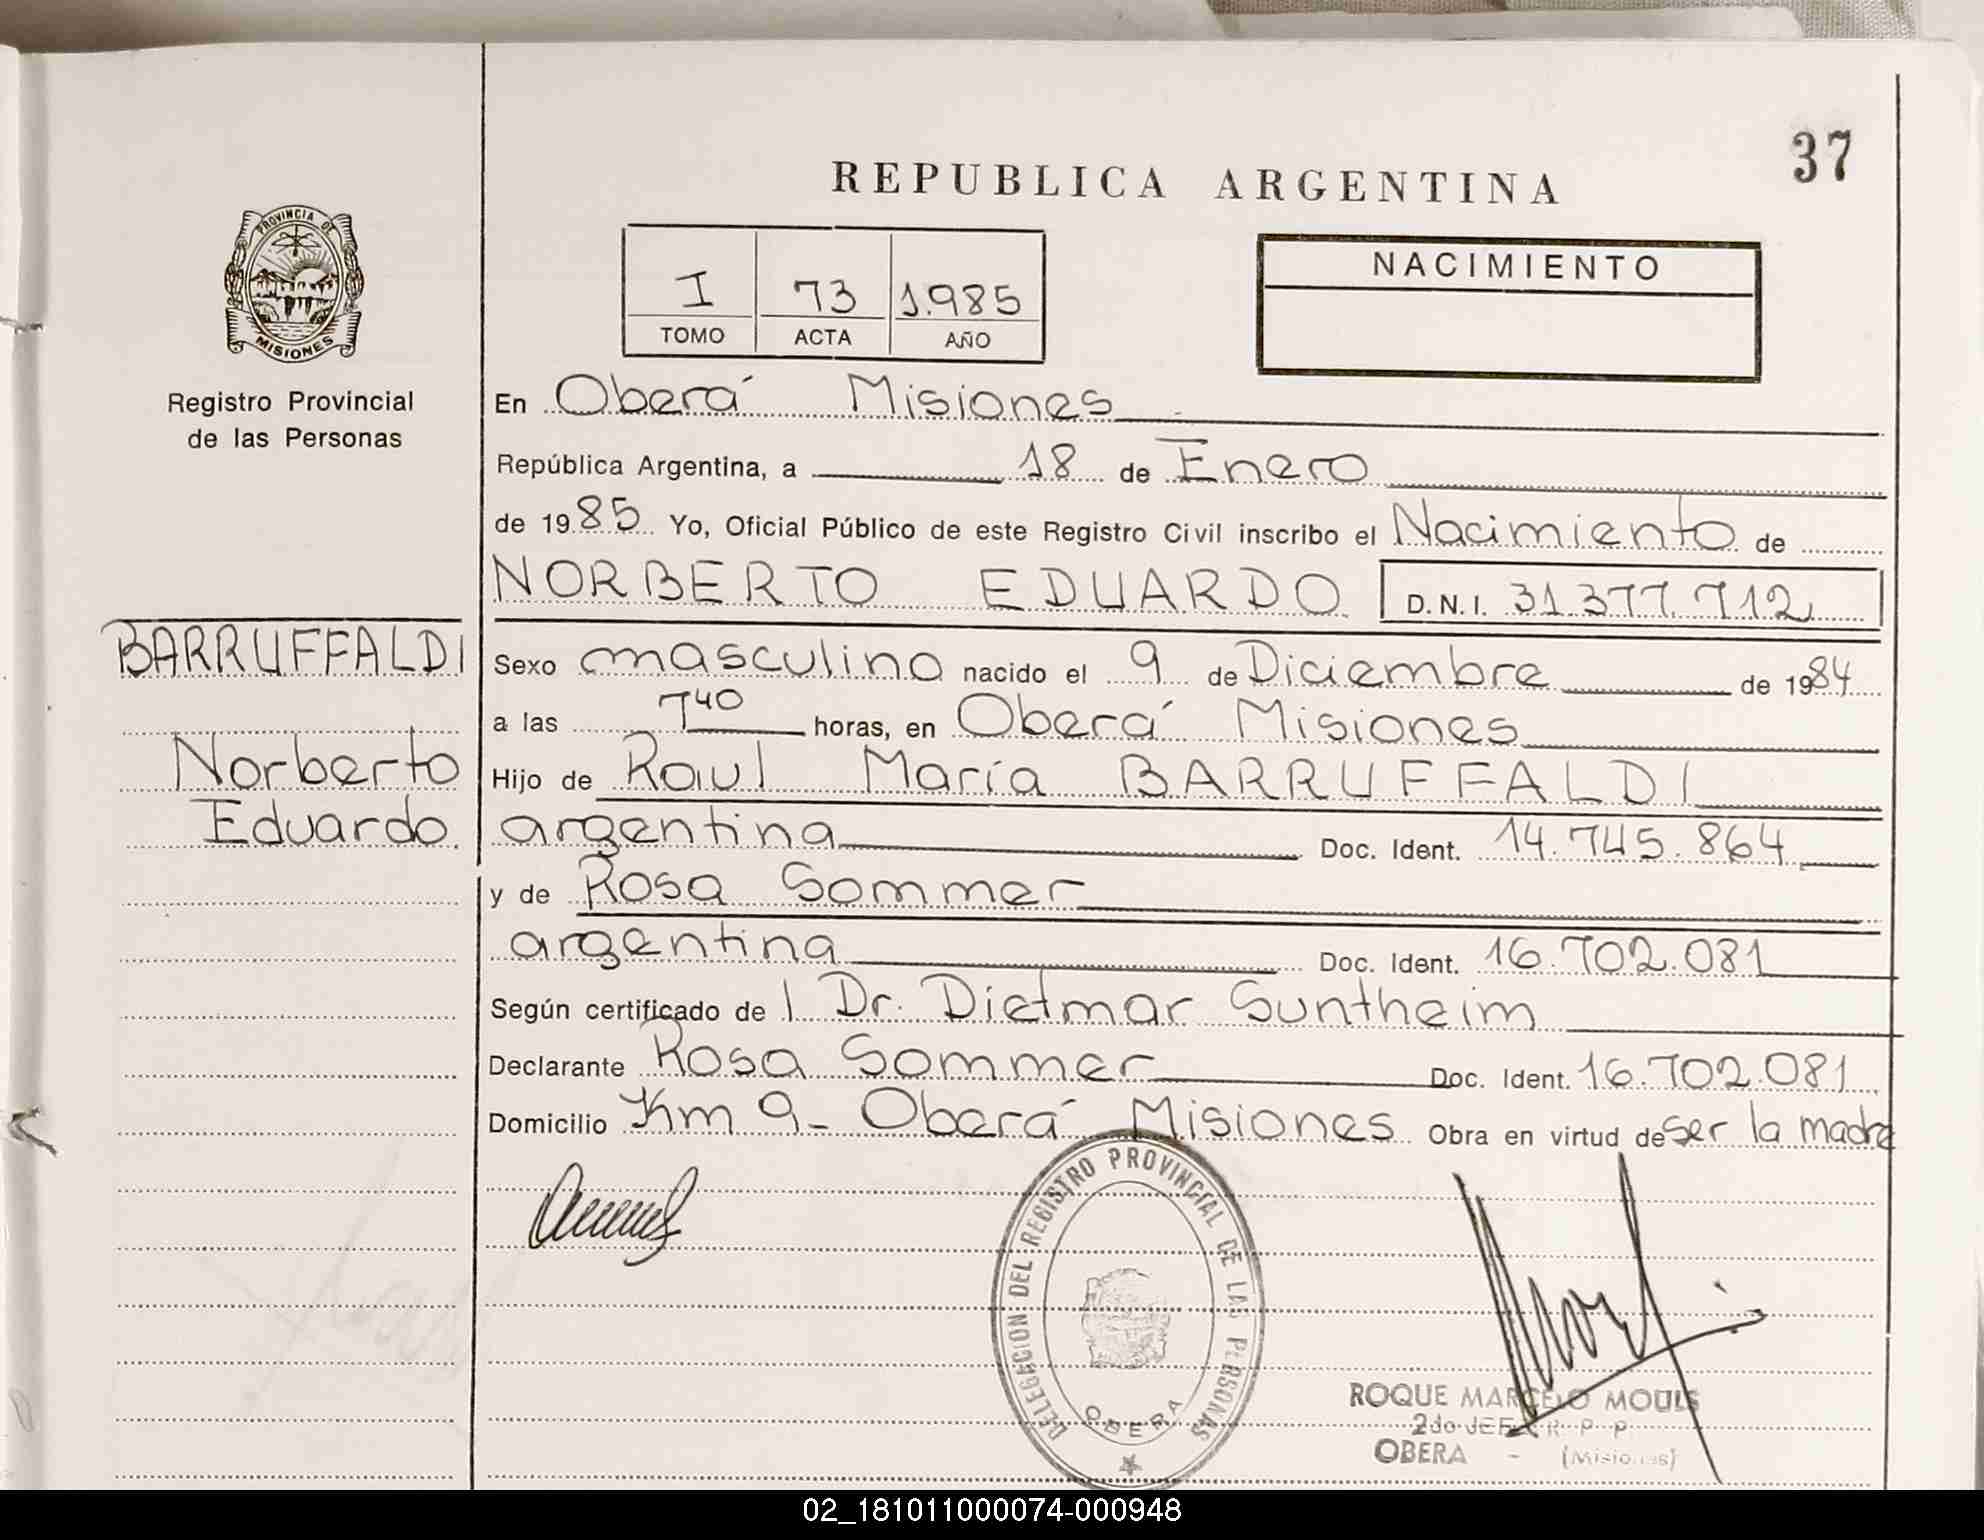 37
REPUBLICA ARGENTINA
PROVINCIA DE
MISIONES
Registro Provincial
de las Personas
I 73 1.985
TOMO ACTA AÑO
NACIMIENTO
En Oberá Misiones
República Argentina, a 18 de Enero
de 1985 Yo, Oficial Público de este Registro Civil inscribo el Nacimiento de
NORBERTO EDUARDO D.N.I. 31.377.712
BARRUFFALDI
Norberto
Eduardo
Sexo masculino nacido el 9 de Diciembre de 1984
a las 7 40 horas, en Oberá Misiones
Hijo de Raul María BARRUFFALDI
argentina Doc. Ident. 14.745.864
y de Rosa Sommer
argentina Doc. Ident. 16.702.081
Según certificado de l Dr. Dietmar Suntheim
Declarante Rosa Sommer Doc. Ident. 16.702.081
Domicilio Km 9 - Oberá Misiones Obra en virtud de ser la madre
DELEGACION DEL REGISTRO PROVINCIAL DE LAS PERSONAS
OBERA
ROQUE MARCELO MOULS
2do JEFE R. P. P
OBERA - (Misiones)
02_181011000074-000948